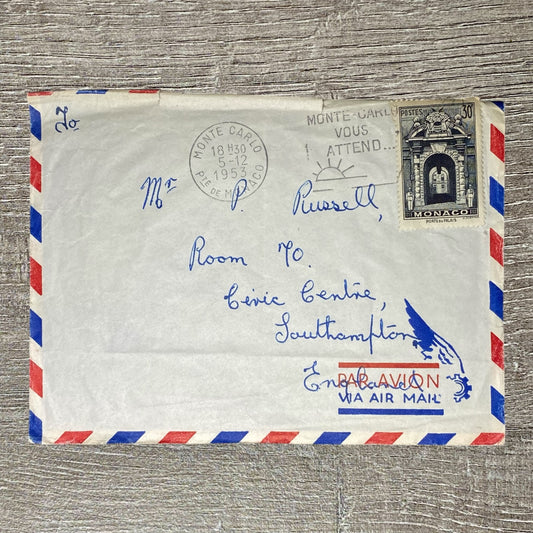 To
MONTE CARLO
18 H30
5-12
1953
PTE DE MONACO
MONTE-CARLO
VOUS
ATTEND...
POSTES
30F
MONACO
PORTE DU PALAIS
Mr P. Russell,
Room 70.
Civic Centre,
Southampton
England
PAR AVION
VIA AIR MAIL